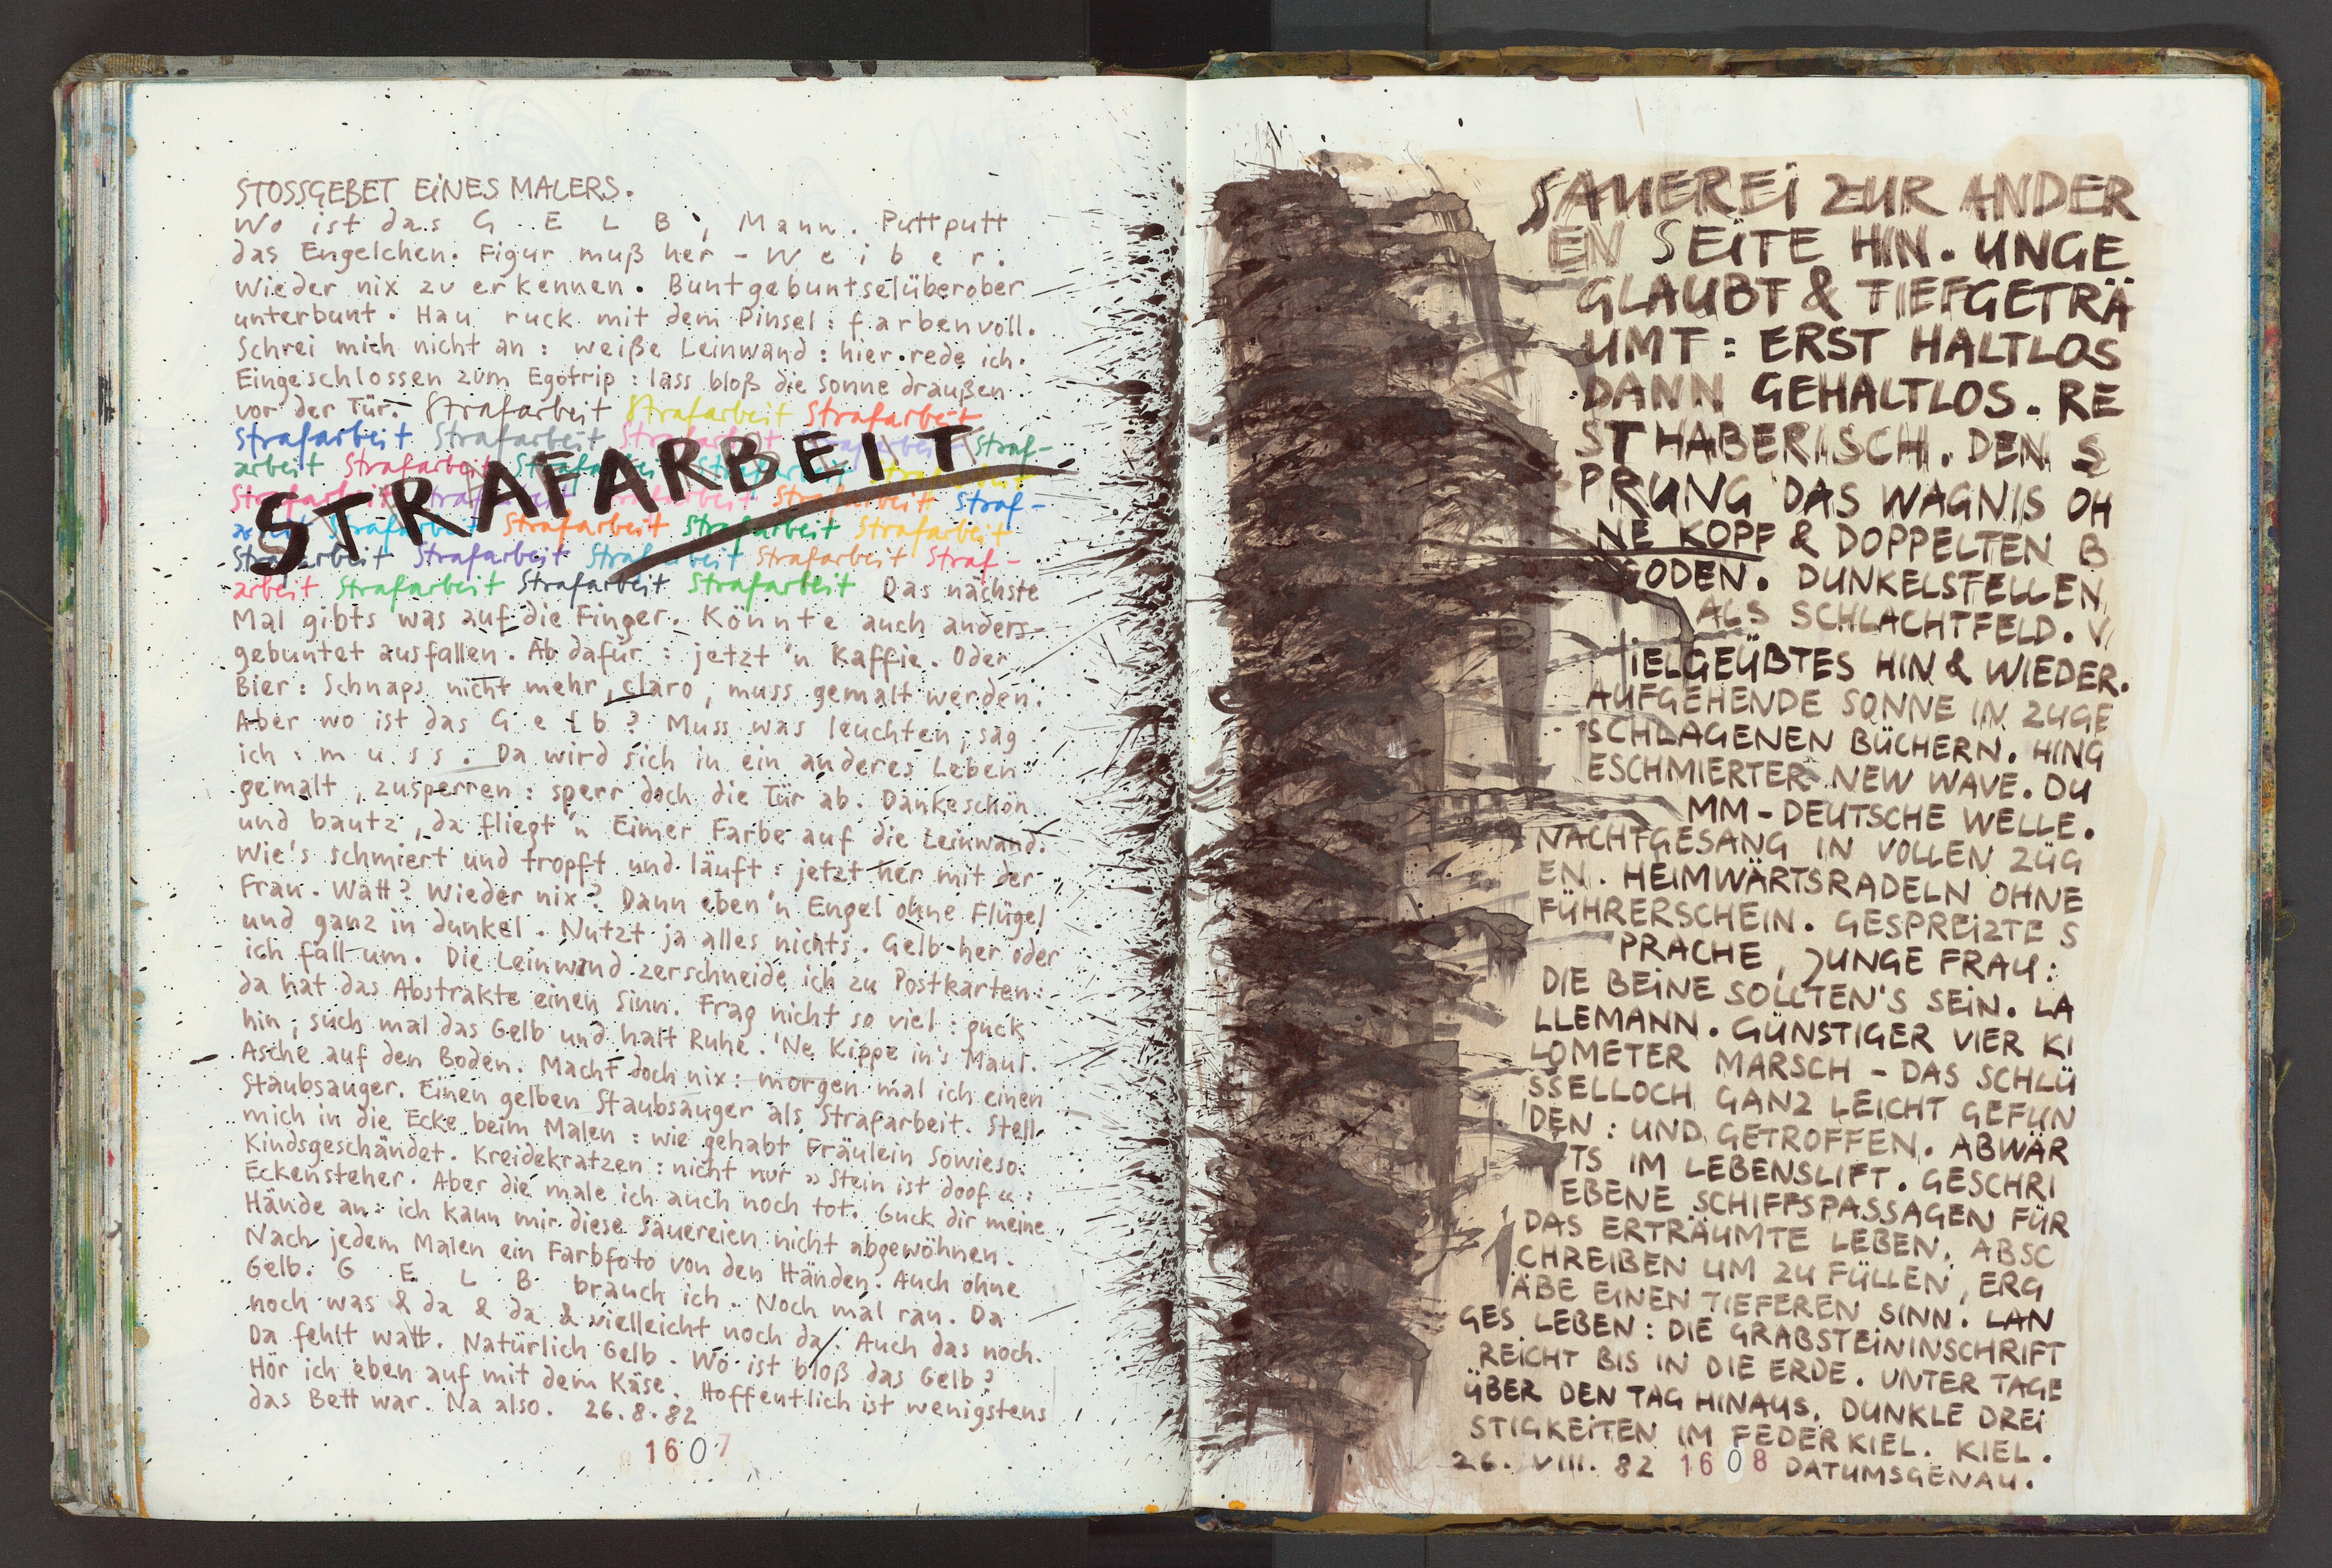 STOSSGEBET EINES MALERS.
Wo ist das G E L B, Mann. Puttputt
das Engelchen. Figur muß her - W e i b e r.
Wieder nix zu erkennen. Buntgebuntselüberober
unterbunt. Hau ruck mit dem Pinsel: farbenvoll.
Schrei mich nicht an: weiße Leinwand: hier rede ich.
Eingeschlossen zum Egotrip: lass bloß die Sonne draußen
vor der Tür. Strafarbeit Strafarbeit Strafarbeit
Strafarbeit Strafarbeit Strafarbeit Strafarbeit Straf-
arbeit Strafarbeit Strafarbeit Strafarbeit Strafarbeit
STRAFARBEIT
Strafarbeit Strafarbeit Strafarbeit Strafarbeit Straf-
arbeit Strafarbeit Strafarbeit Strafarbeit Strafarbeit
Strafarbeit Strafarbeit Strafarbeit Strafarbeit Straf-
arbeit Strafarbeit Strafarbeit Strafarbeit Das nächste
Mal gibts was auf die Finger. Könnte auch anders-
gebuntet ausfallen. Ab dafür: jetzt 'n Kaffie. Oder
Bier: Schnaps nicht mehr, claro, muss gemalt werden.
Aber wo ist das G e l b? Muss was leuchten, sag
ich: m u s s. Da wird sich in ein anderes Leben
gemalt, zusperren: sperr doch die Tür ab. Dankeschön
und bautz, da fliegt 'n Eimer Farbe auf die Leinwand.
Wie's schmiert und tropft und läuft: jetzt her mit der
Frau. Watt? Wieder nix? Dann eben 'n Engel ohne Flügel
und ganz in dunkel. Nutzt ja alles nichts. Gelb her oder
ich fall um. Die Leinwand zerschneide ich zu Postkarten:
da hat das Abstrakte einen Sinn. Frag nicht so viel: guck
hin, such mal das Gelb und halt Ruhe. 'Ne Kippe in's Maul.
Asche auf den Boden. Macht doch nix: morgen mal ich einen
Staubsauger. Einen gelben Staubsauger als Strafarbeit. Stell
mich in die Ecke beim Malen: wie gehabt Fräulein Sowieso.
Kindsgeschändet. Kreidekratzen: nicht nur »Stein ist doof«:
Eckensteher. Aber die male ich auch noch tot. Guck dir meine
Hände an: ich kann mir diese Sauereien nicht abgewöhnen.
Nach jedem Malen ein Farbfoto von den Händen. Auch ohne
Gelb. G E L B brauch ich. Noch mal ran. Da
noch was & da & da & vielleicht noch da. Auch das noch.
Da fehlt watt. Natürlich Gelb. Wo ist bloß das Gelb?
Hör ich eben auf mit dem Käse. Hoffentlich ist wenigstens
das Bett war. Na also. 26.8.82
1607
SAUEREI ZUR ANDER
EN SEITE HIN. UNGE
GLAUBT & TIEFGETRÄ
UMT: ERST HALTLOS
DANN GEHALTLOS. RE
STHABERISCH. DEN S
PRUNG DAS WAGNIS OH
NE KOPF & DOPPELTEN B
ODEN. DUNKELSTELLEN
ALS SCHLACHTFELD. V
IELGEÜBTES HIN & WIEDER.
AUFGEHENDE SONNE IN ZUGE
SCHLAGENEN BÜCHERN. HING
ESCHMIERTER NEW WAVE. DU
MM-DEUTSCHE WELLE.
NACHTGESANG IN VOLLEN ZÜG
EN. HEIMWÄRTSRADELN OHNE
FÜHRERSCHEIN. GESPREIZTE S
PRACHE, JUNGE FRAU:
DIE BEINE SOLLTEN'S SEIN. LA
LLEMANN. GÜNSTIGER VIER KI
LOMETER MARSCH - DAS SCHLÜ
SSELLOCH GANZ LEICHT GEFUN
DEN: UND GETROFFEN. ABWÄR
TS IM LEBENSLIFT. GESCHRI
EBENE SCHIFFSPASSAGEN FÜR
DAS ERTRÄUMTE LEBEN. ABSC
CHREIBEN UM ZU FÜLLEN, ERG
ÄBE EINEN TIEFEREN SINN. LAN
GES LEBEN: DIE GRABSTEININSCHRIFT
REICHT BIS IN DIE ERDE. UNTER TAGE
ÜBER DEN TAG HINAUS. DUNKLE DREI
STIGKEITEN IM FEDERKIEL. KIEL.
26. VIII. 82 1608 DATUMSGENAU.